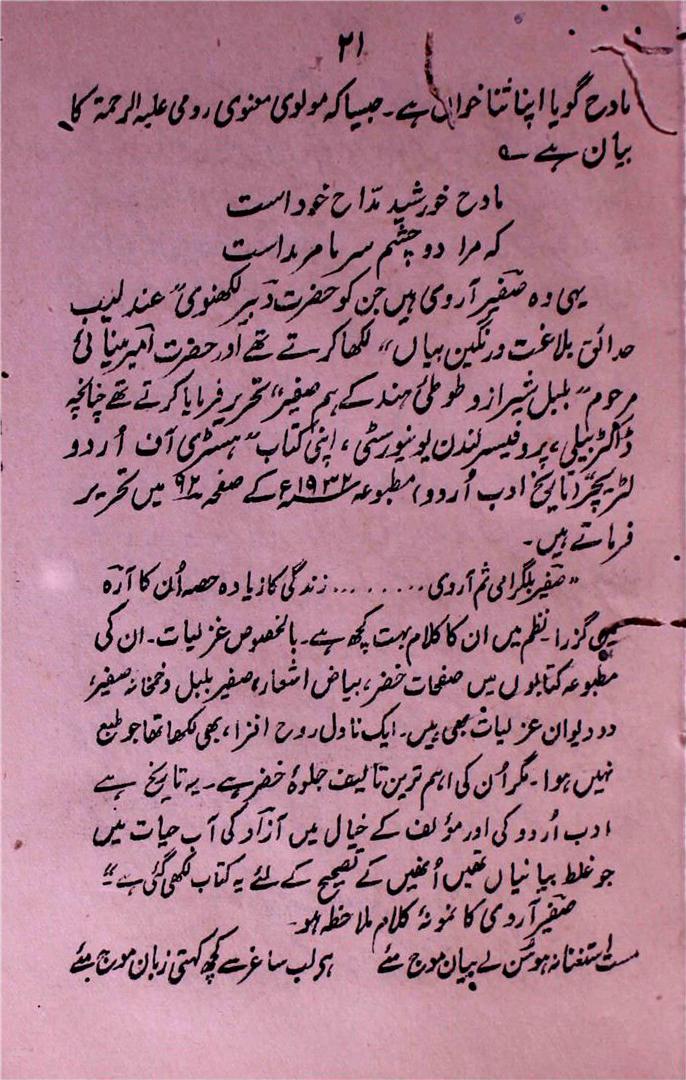 ۲۱
مادح گویا اپنا ثنا خواں ہے۔ جیسا کہ مولوی معنوی رومی علیہ الرحمۃ کا
بیان ہے ؎
مادح خورشید مدّاح خود است
کہ مرا دو چشم سر نامرمد است
یہی وہ صفیر آروی ہیں جن کو حضرت دبیر لکھنوی ”عندلیب
حدائق بلاغت و رنگین بیاں“ لکھا کرتے تھے اور حضرت امیر مینائی
مرحوم ”بلبل شیراز و طوطئ ہند کے ہم صفیر“ تحریر فرمایا کرتے تھے چنانچہ
ڈاکٹر بیلی، پروفیسر لندن یونیورسٹی، اپنی کتاب ”ہسٹری آف اُردو
لٹریچر“ (تاریخ ادب اُردو) مطبوعہ ۱۹۳۲ء کے صفحہ ۹۲ میں تحریر
فرماتے ہیں۔
”صفیر بلگرامی ثم آروی ......... زندگی کا زیادہ حصہ اُن کا آرہ
میں گزرا۔ نظم میں ان کا کلام بہت کچھ ہے۔ بالخصوص غزلیات۔ ان کی
مطبوعہ کتابوں میں صفحات خضر، بیاض اشعار، صفیر بلبل و خمخانۂ صفیر،
دو دیوان غزلیات بھی ہیں۔ ایک ناول روح افزا، بھی لکھا تھا جو طبع
نہیں ہوا۔ مگر اُن کی اہم ترین تالیف جلوۂ خضر ہے۔ یہ تاریخ ہے
ادب اُردو کی اور مؤلف کے خیال میں آزاد کی آب حیات میں
جو غلط بیانیاں تھیں اُنھیں کے تصحیح کے لئے یہ کتاب لکھی گئی ہے“
صفیر آروی کا نمونۂ کلام ملاحظہ ہو۔
مست استغنا نہ ہو سُن لے بیان موج مئے ہر لب ساغر سے کچھ کہتی زبان موج مئے